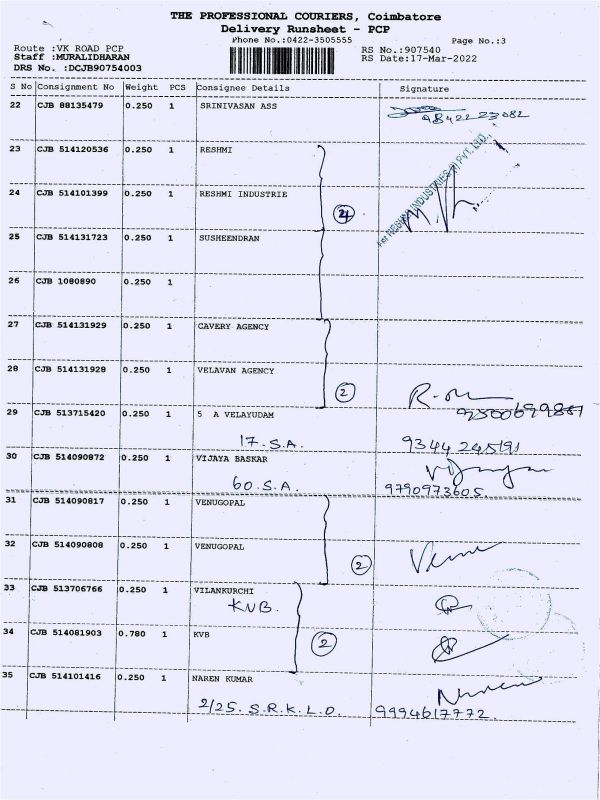 THE PROFESSIONAL COURIERS, Coimbatore
Delivery Runsheet - PCP
Phone No.:0422-3505555
Page No.:3
Route :VK ROAD PCP
RS No.:907540
Staff :MURALIDHARAN
RS Date:17-Mar-2022
DRS No. :DCJB90754003
S No Consignment No Weight PCS Consignee Details Signature
22 CJB 88135479 0.250 1 SRINIVASAN ASS
9842223082
23 CJB 514120536 0.250 1 RESHMI
24 CJB 514101399 0.250 1 RESHMI INDUSTRIE
4
RESHMI INDUSTRIES (I) PVT. LTD.
25 CJB 514131723 0.250 1 SUSHEENDRAN
26 CJB 1080890 0.250 1
27 CJB 514131929 0.250 1 CAVERY AGENCY
28 CJB 514131928 0.250 1 VELAVAN AGENCY
2
29 CJB 513715420 0.250 1 S A VELAYUDAM
17. S.A.
30 CJB 514090872 0.250 1 VIJAYA BASKAR
60. S.A. 9790973605
31 CJB 514090817 0.250 1 VENUGOPAL
32 CJB 514090808 0.250 1 VENUGOPAL
2
33 CJB 513706766 0.250 1 VILANKURCHI
KVB.
34 CJB 514081903 0.780 1 KVB
2
35 CJB 514101416 0.250 1 NAREN KUMAR
Naren
2/25. S.R.K.L.O. 9994617772.